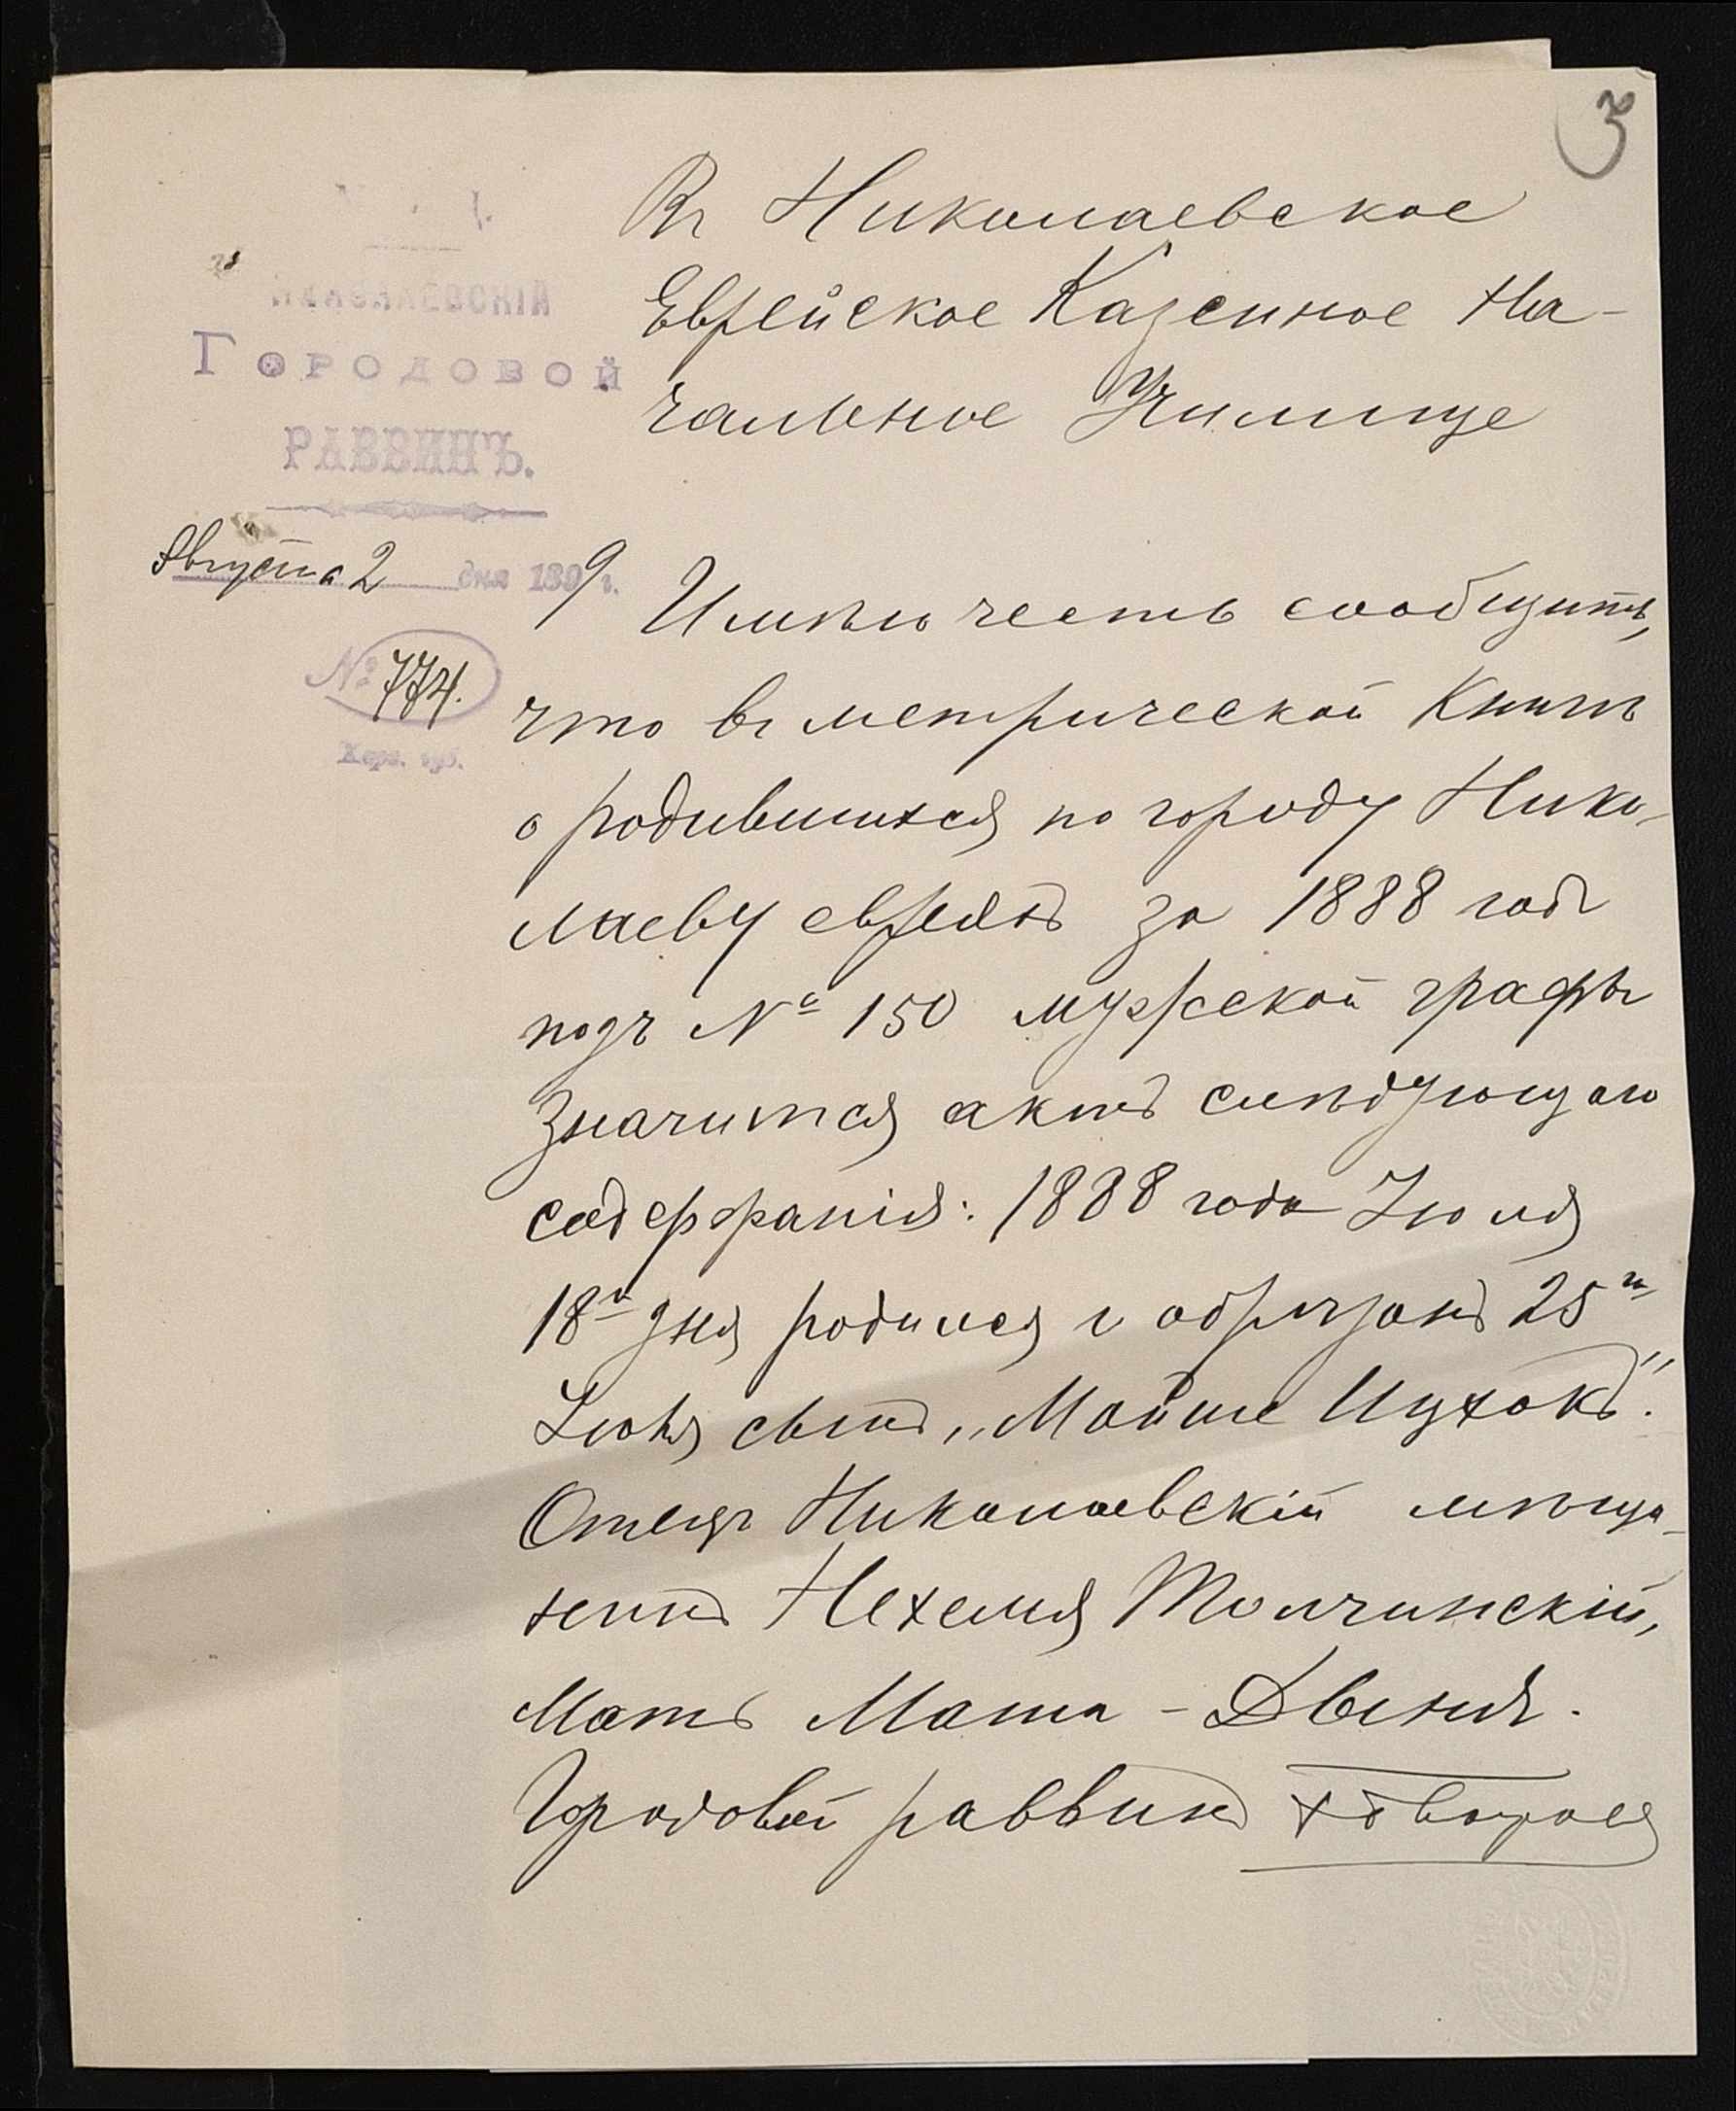 3
НИКОЛАЕВСКІЙ
ГОРОДОВОЙ
РАВВИНЪ.
Августа 2 дня 1899 г.
№ 774.
Херс. губ.
Въ Николаевское
Еврейское Казенное На-
чальное Училище
Имѣю честь сообщить,
что въ метрической Книгѣ
о родившихся по городу Нико-
лаеву евреяхъ за 1888 годъ
подъ № 150 мужской графы
значится актъ слѣдующаго
содержанія: 1888 года Іюля
18го дня родился и обрѣзанъ 25го
Іюля сынъ „Мойше Ицхокъ".
Отецъ Николаевскій мѣща-
нинъ Нехемія Толчинскій,
Мать Маша - Двейня.
Городовой раввинъ